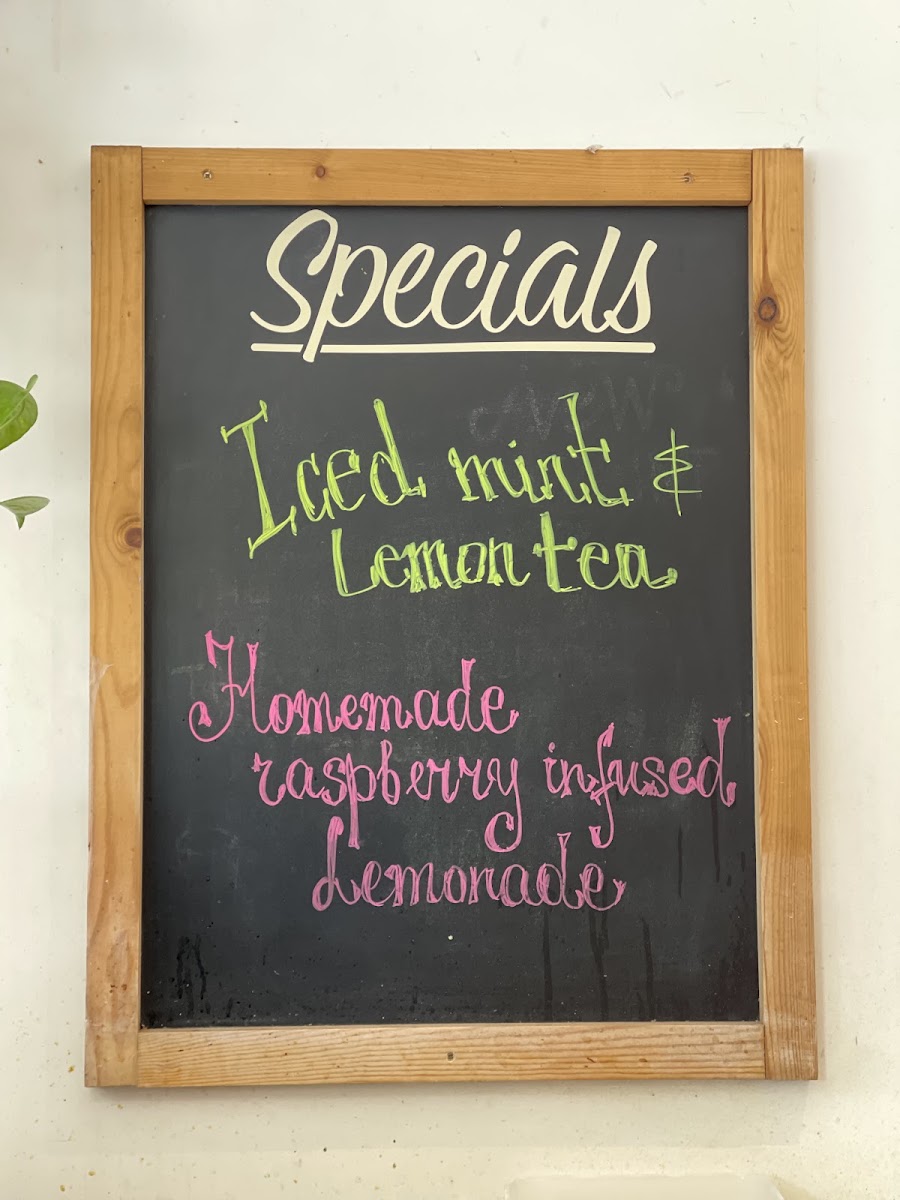 Specials
Iced mint &
Lemon tea
Homemade
raspberry infused
Lemonade